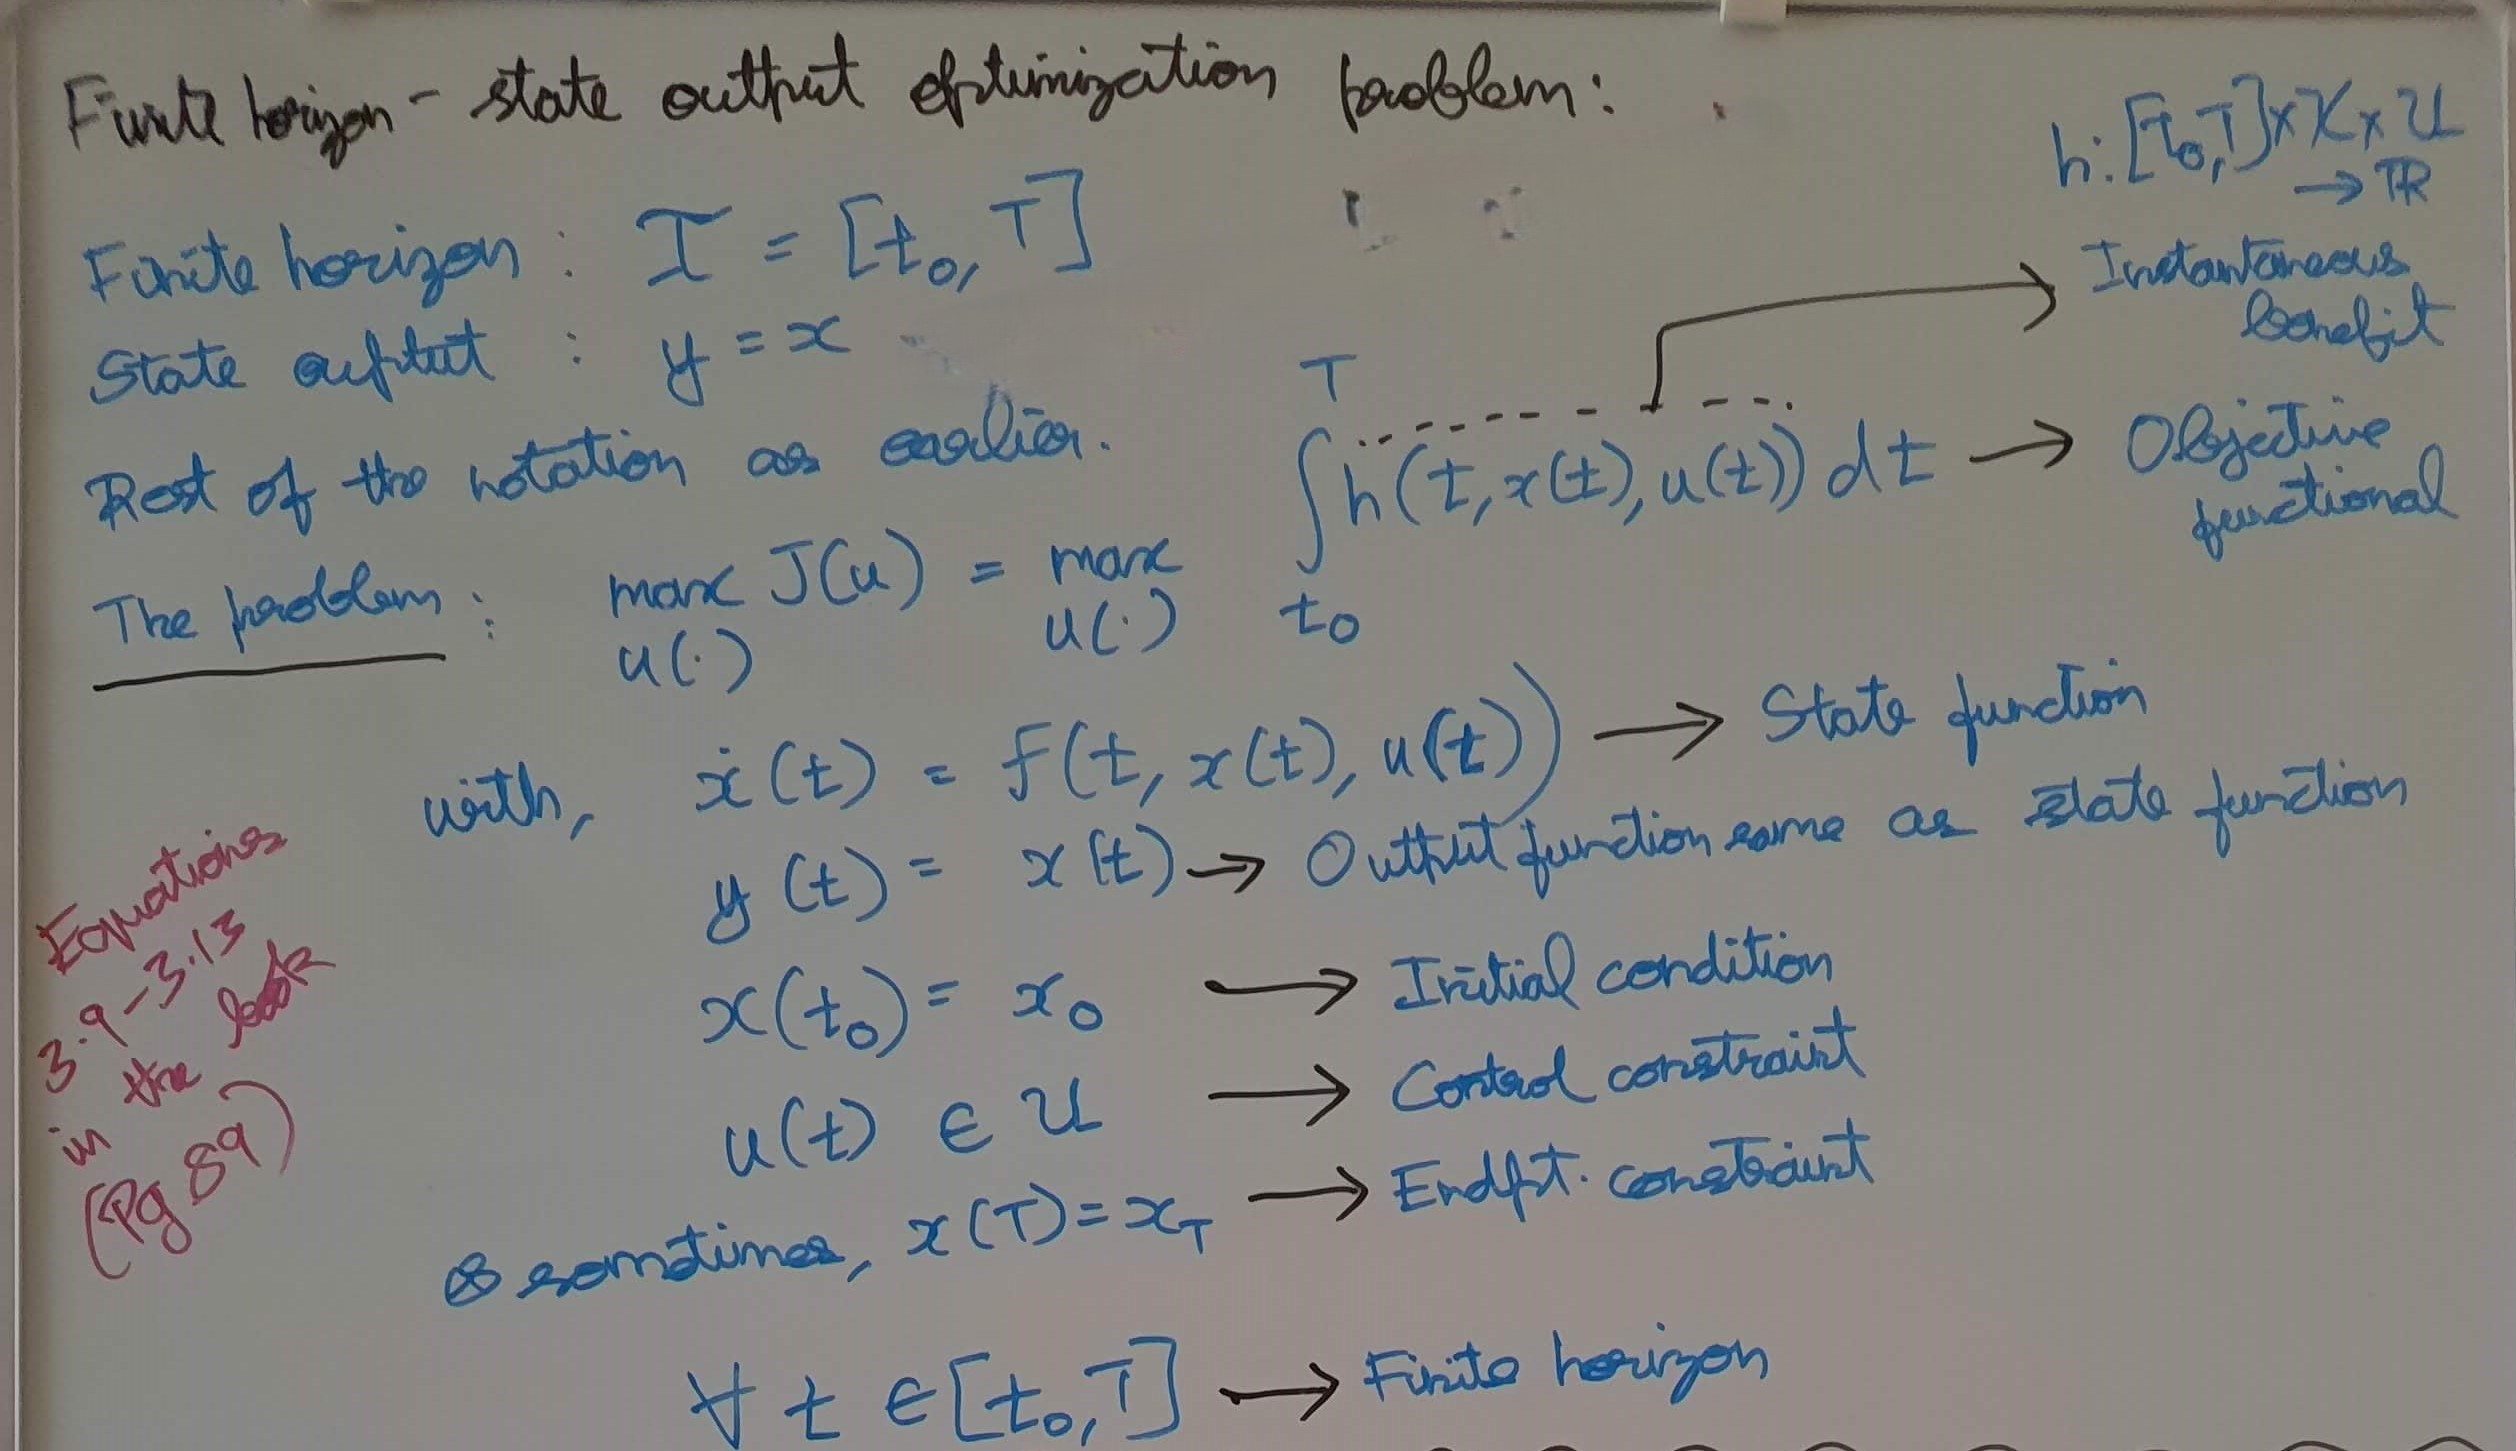 Finite horizon - state output optimization problem:
h: [t₀, T] × X × U
→ ℝ
Finite horizon : I = [t₀, T]
Instantaneous
benefit
State output : y = x
Rest of the notation as earlier.
The problem : max J(u) = max ∫ h(t, x(t), u(t)) dt → Objective
functional
u(·) u(·) t₀ T
with, ẋ(t) = f(t, x(t), u(t)) → State function
y(t) = x(t) → Output function same as state function
x(t₀) = x₀ → Initial condition
u(t) ∈ U → Control constraint
sometimes, x(T) = x_T → Endpt. constraint
∀ t ∈ [t₀, T] → Finite horizon
Equations
3.9-3.13
in the book
(Pg 89)